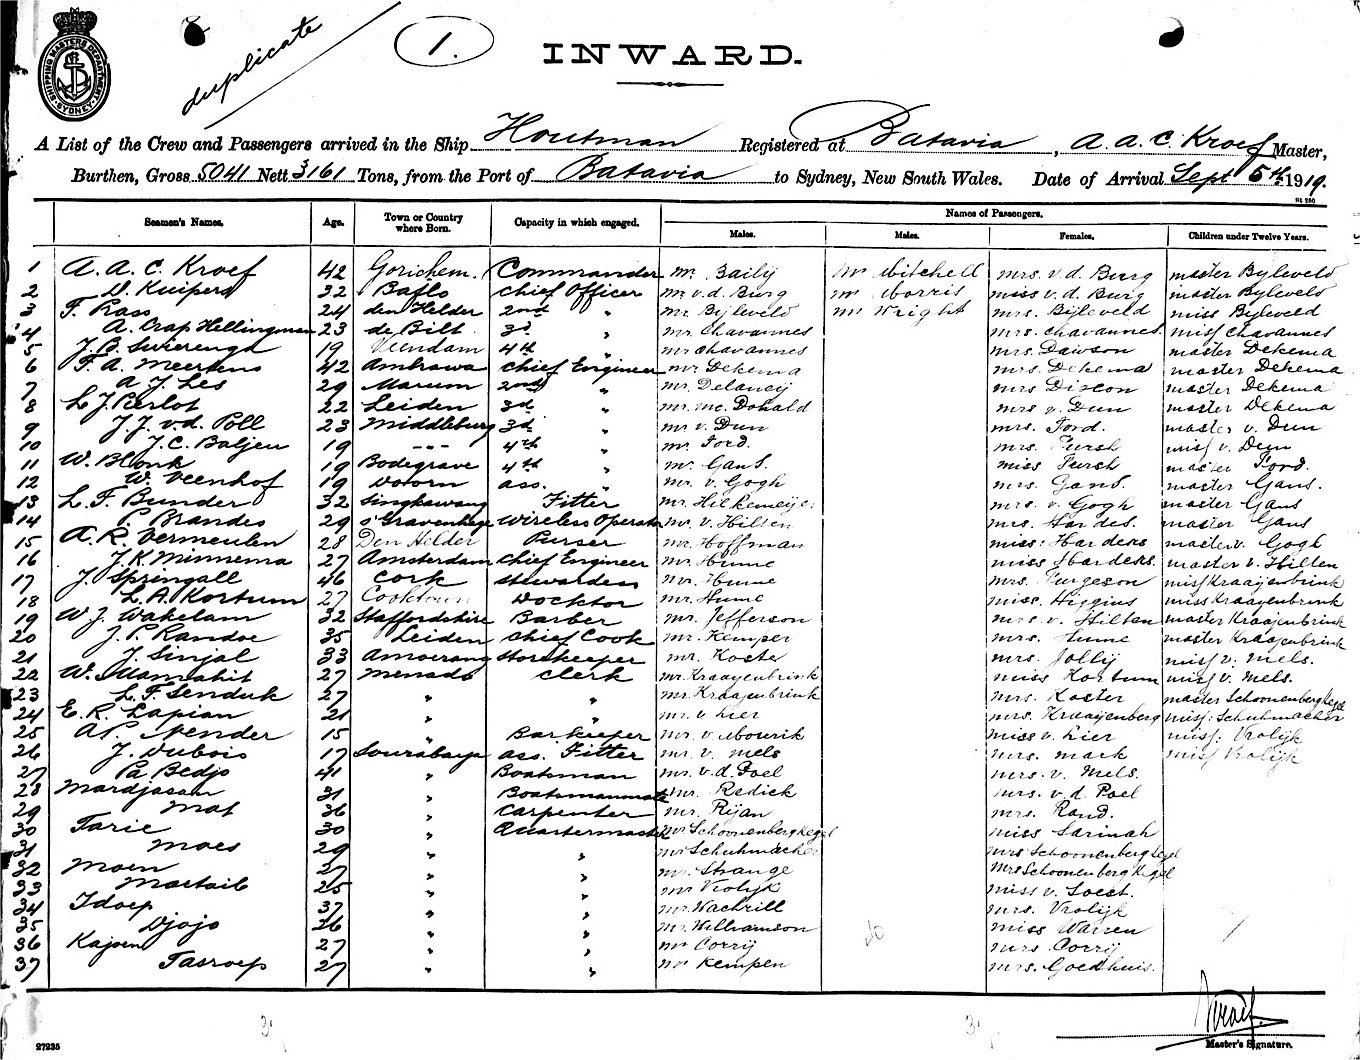 SHIPPING MASTERS DEPARTMENT SYDNEY
duplicate
1.
INWARD.
A List of the Crew and Passengers arrived in the Ship Houtman Registered at Batavia, A. A. C. Kroef Master,
Burthen, Gross 5041 Nett 3161 Tons, from the Port of Batavia to Sydney, New South Wales. Date of Arrival Sept 5th 1919.
Seamen's Names. Age. Town or Country where Born. Capacity in which engaged. Names of Passengers.
Males. Males. Females. Children under Twelve Years.
1 A. A. C. Kroef 42 Gorichem. Commander mr. Baily mr Mitchell mrs. v.d. Burg master Byleveld
2 D. Kuipers 32 Baflo chief Officer mr v.d. Burg mr Morris miss v.d. Burg master Byleveld
3 F. Rass 24 den Helder 2nd " mr. Byleveld mr Wright mrs. Bijleveld miss Byleveld
4 A. Crap Hellingman 23 de Bilt 3d " mr. Chavannes mrs. chavannes miss Chavannes
5 J. B. Swierenga 19 Veendam 4th " mr chavannes mrs. Dawson master Dekema
6 F. A. Meertens 42 chief Engineer mr. Dekema mrs. Dekema master Dekema
7 A. J. Les 29 Marum 2nd " mr. Delaney mrs Dixon master Dekema
8 L. J. Perlot 22 Leiden 3d " mr. mc. Donald mrs v. Dun master Dekema
9 J. J. v.d. Poll 23 Middleburg 3d " mr v. Dun mrs. Ford. master v. Dun
10 J. C. Baljeu 19 - - - 4th " mr. Ford. mrs. Fursh miss v. Dun
11 W. Blonk 19 Bodegrave 4th " mr. Gans. miss Fursh master Ford.
12 W. Veenhof 19 Doorn ass. " mr. v. Gogh mrs. Gans. master Gans.
13 L. F. Bunder 32 Singkawang Fitter mr. Hilkemeijer mrs. v. Gogh master Gans
14 P. Brandes 29 's Gravenhage Wireless Operator mr. v. Hilten mrs. Hardes. master Gans
15 A. R. Vermeulen 28 Den Helder Purser mr. Hoffman miss. Harders master v. Gogh
16 J. K. Minnema 27 Amsterdam chief Engineer mr. Hume miss Harders. master v. Hilten
17 J. Springall 46 Cork stewardess mr. Hume mrs. Furgeson miss Kraayenbrink
18 L. A. Kortum 27 Cooktown Docktor mr. Hume miss. Higgins miss Kraayenbrink
19 W. J. Wakelam 32 Staffordshire Barber mr. Jefferson mrs. v. Hilten master Kraayenbrink
20 J. P. Randoe 35 Leiden chief Cook mr. Kemper mrs. Hume master Kraayenbrink
21 J. Sinjal 33 Amoerang Storekeeper mr. Koster mrs. Jolly miss v. Mels.
22 W. Mamahit 27 menado clerk mr. Kraayenbrink miss Kortum miss v. Mels.
23 L. F. Senduk 27 " " mr. Kraayenbrink mrs. Koster master Schoonenberg Kegel
24 E. R. Lapian 21 " " mr. v. hier mrs. Kraayenberg miss. Schuhmacher
25 A. P. Nender 15 " Barkeeper mr. v. Mourik miss v. hier miss. Vrolijk
26 J. Dubois 17 Sourabaya ass. Fitter mr. v. Mels mrs. mack miss Vrolijk
27 Pa Bedjo 41 " Boatsman mr. v.d. Poel mrs. v. Mels.
28 Mardjasan 31 " Boatsmanmate mr. Redick mrs. v.d. Poel
29 Mat 36 " Carpenter mr. Rijan mrs. Rand.
30 Tarie 30 " Quartermaster mr Schoonenberg Kegel miss Sarinah
31 Moes 29 " " mr Schuhmacher mrs Schoonenberg Kegel
32 Moen 27 " " mr. Strange Mrs Schoonenberg Kegel
33 Martaib 25 " " mr Vrolijk miss v. Soest.
34 Idoep 37 " " mr. Wachtill mrs. Vrolijk
35 Djojo 26 " " mr. Williamson miss Warren
36 Kajoen 27 " " mr Corry mrs Corry
37 Tasroep 27 " " mr Kempen mrs. Goedhuis.
Kroef
27235 Master's Signature.